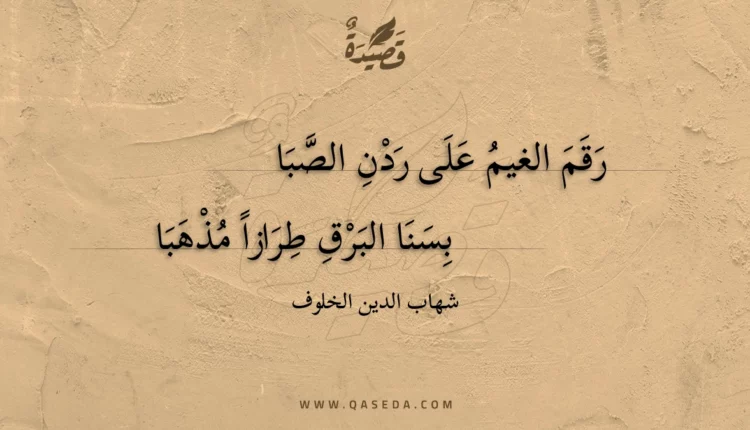 قَصِيْدَةٌ
رَقَمَ الغيمُ عَلَى رَدْنِ الصَّبَا
بِسَنَا البَرْقِ طِرَازاً مُذْهَبَا
شهاب الدين الخلوف
WWW.QASEDA.COM